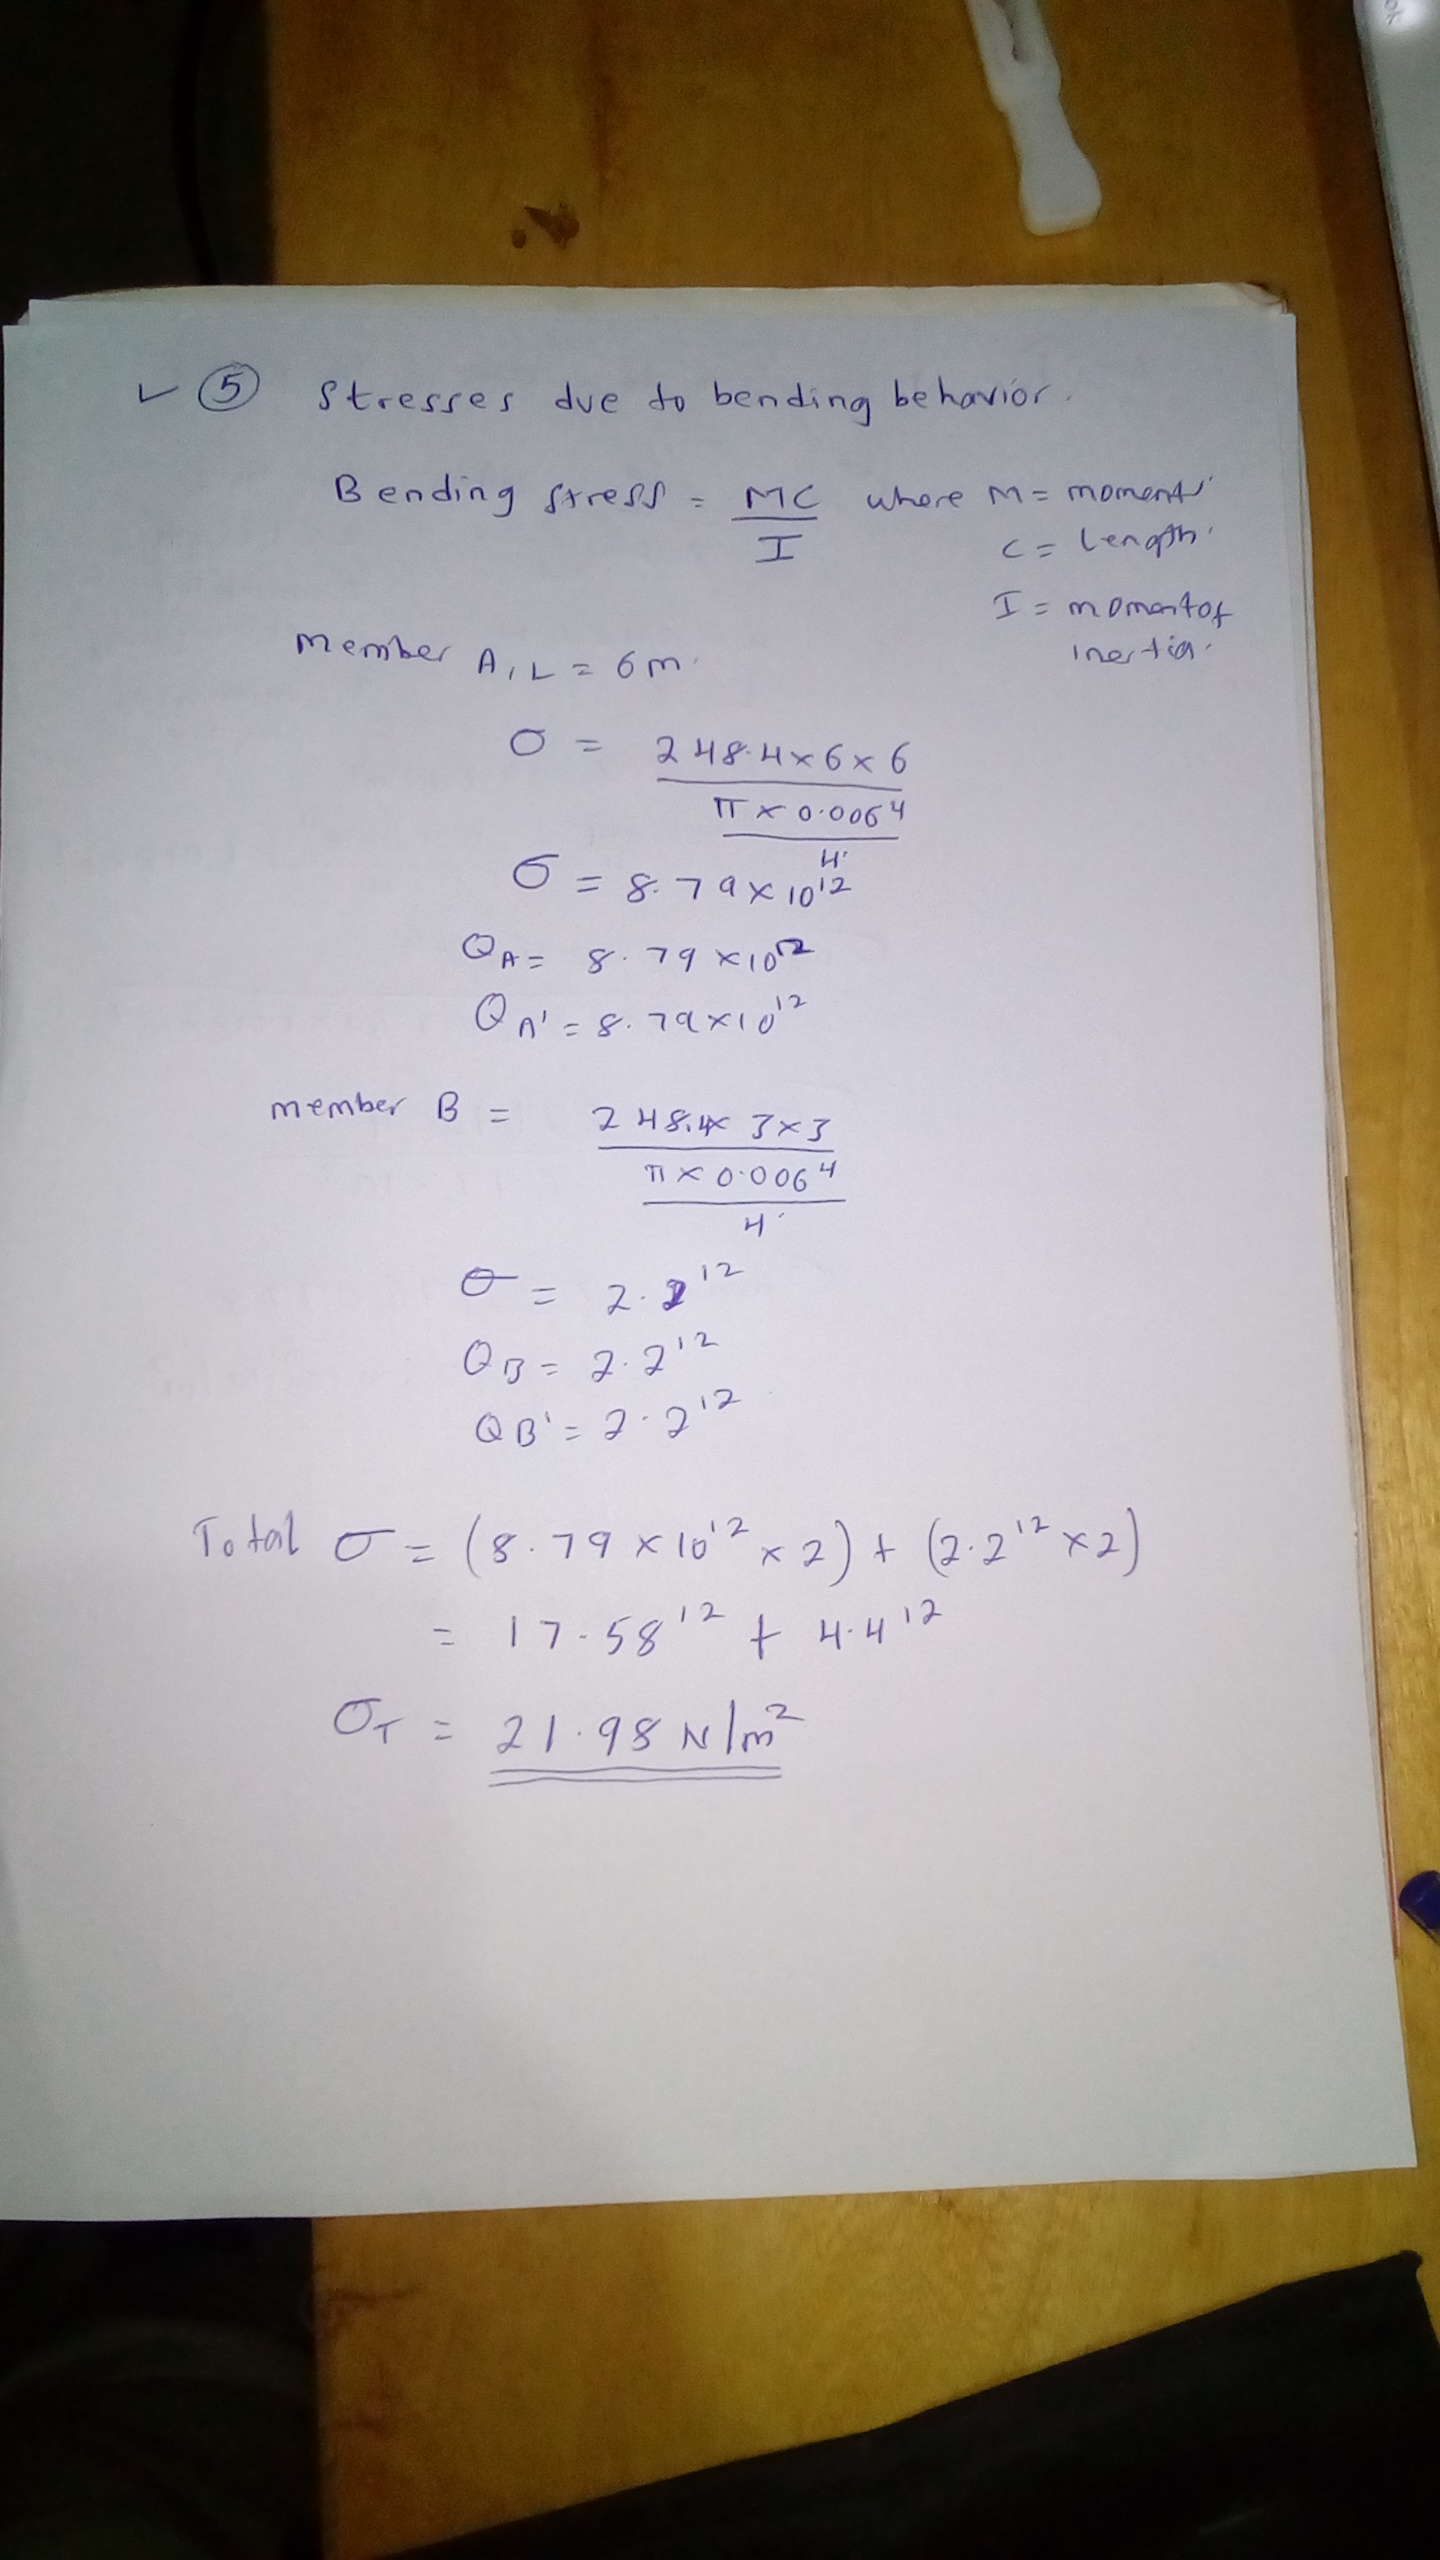 ✓ ⑤ Stresses due to bending behavior.
Bending stress = MC/I where M = moments
C = Length.
I = moment of inertia.
Member A, L = 6m.
σ = (248.4 × 6 × 6) / (π × 0.006⁴ / 4)
σ = 8.79 × 10¹²
QA = 8.79 × 10¹²
QA' = 8.79 × 10¹²
member B = (248.4 × 3 × 3) / (π × 0.006⁴ / 4)
σ = 2.2¹²
QB = 2.2¹²
QB' = 2.2¹²
Total σ = (8.79 × 10¹² × 2) + (2.2¹² × 2)
= 17.58¹² + 4.4¹²
σT = 21.98 N/m²